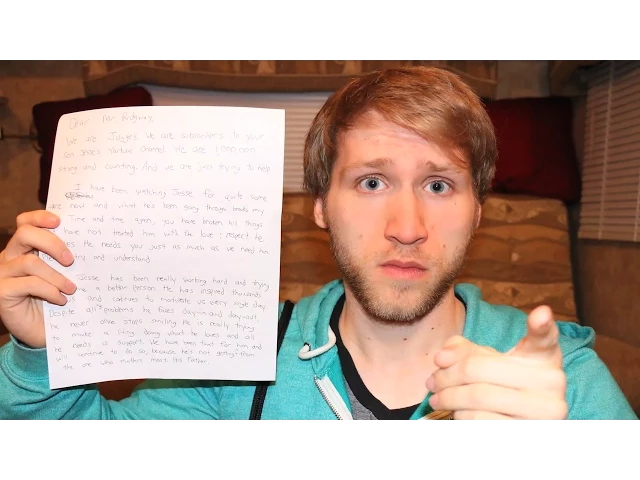 Dear
We are Juggies we are subscribers to your
son Jesse's Youtube channel. We are 1,000,000
strong and counting. And we are just trying to help
I have been watching Jesse for quite some
now and what he's been going through breaks my
Time and time again, you have broken his things
have not treated him with the love & respect he
He needs you just as much as we need him
try and understand.
Jesse has been really working hard and trying
a better person. He has inspired thousands
and strives to motivate us every single day.
Despite all problems he faces day-in and day-out,
he never stops smiling. He is really trying
to make a living doing what he loves and all
he needs is support. We have been that for him and
will continue to do so, because he's not getting it from
the one who matters most. His Father.